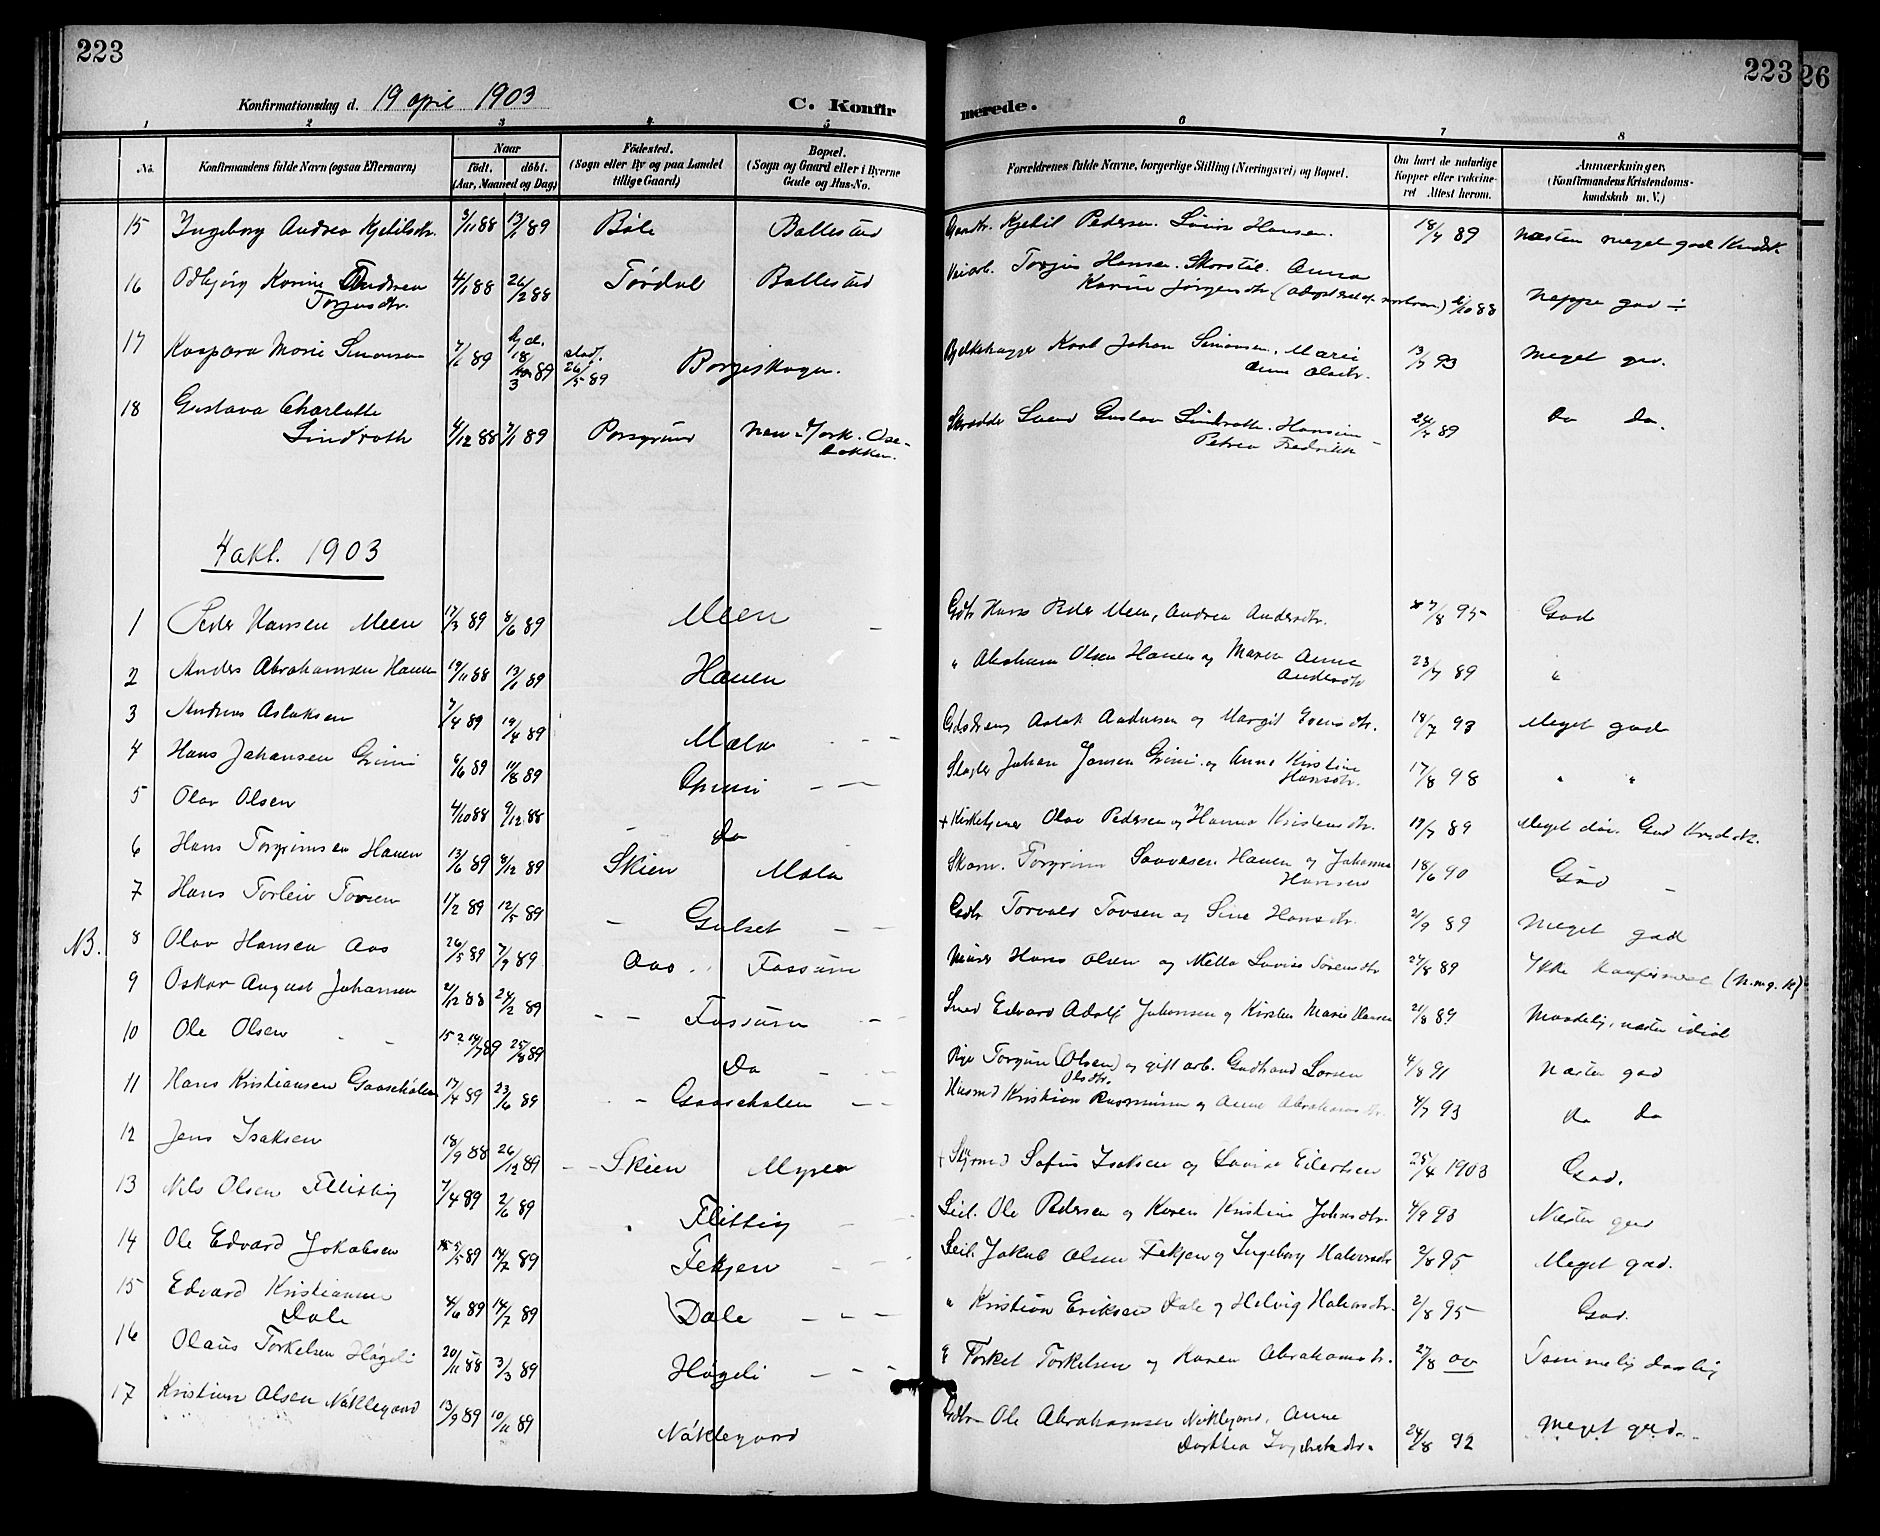 223
Konfirmationsdag d. 19 april 1903
C. Konfir
merede.
223
26
1 2 3 4 5 6 7 8
No.
Konfirmandens fulde Navn (ogsaa Efternavn)
Naar
født. døbt.
(Aar, Maaned og Dag)
Fødested.
(Sogn eller By og paa Landet
tillige Gaard)
Bopæl.
(Sogn og Gaard eller i Byerne
Gade og Hus-No.
Forældrenes fulde Navne, borgerlige Stilling (Næringsvei) og Bopæl.
Om havt de naturlige
Kopper eller vakcine-
ret Attest herom.
Anmærkninger.
(Konfirmandens Kristendoms-
kundskab m. V.)
15 Ingeborg Andrea Kjetilsdtr. 9/11 88 13/1 89 Bøle Ballestad Kjetil Pedersen. Hansen. 18/7 89 næsten meget god Kundsk
16 Odbjørg Karine Andrea 4/1 88 26/2 88 Tørdal Ballestad Veiarb. Torjus Hansen. Anna
Torjusdtr. Karine Jørgensdtr. /10 88 neppe god ÷
17 Kaspara Marie Simonsen 7/1 89 hjd. 18/3 89 stad. 26/5 89 Borgeskogen. Bjelkehugger Karl Johan Simonsen. Marie
Anne Olsdtr. 13/7 93 Meget god.
18 Gustava Charlotte
Lindroth 4/12 88 7/1 89 Porsgrund New-York. Ose-
bakken. Skrædder Svend Gustav Lindroth. Hansine
Petrea Fredrikke 24/7 89 Do Do.
4 okt. 1903
1 Peder Hansen Meen 17/3 89 8/6 89 Meen Gdbr Hans Peder Meen, Andrea Andersdtr. 27/8 95 God
2 Anders Abrahamsen Hauen 19/11 88 13/1 89 Hauen " Abraham Olsen Hauen og Maren Anne
Andersdtr 23/7 89 "
3 Andreas Aslaksen 7/4 89 19/4 89 Mæla Aslak Andersen og Margit Evensdtr. 18/7 93 Meget god
4 Hans Johansen Grini 6/6 89 11/8 89 Grini Johan Jansen Grini og Anne Kirstine
Hansdtr. 17/8 98 " "
5 Olav Olsen 4/10 88 9/12 88 Do + Kirketjener Olav Pedersen og Hanna Kristensdtr. 17/7 89
6 Hans Torgrimsen Hauen 13/6 89 8/12 89 Skien Mæla Skom. Torgrim Saavesen Hauen og Johanne
Hansen 18/6 90 God
7 Hans Torleiv Tovsen 1/2 89 12/5 89 Gulset Gdbr Torvald Tovsen og Sine Hansdtr. 21/9 89 Meget god
NB. 8 Olav Hansen Aas 26/5 89 7/7 89 Aas Fossum Hans Olsen og Mette Lovise Sørensdtr 27/8 89 Ikke konfirmeret (n.m.g.K)
9 Oskar August Johansen 2/12 88 24/2 89 Fossum Smed Edvard Adolf Johansen og Kirsten Marie Hansen 21/8 89 Maadelig, næsten idiot
10 Ole Olsen 25/8 89 Do Pige Torgun (Olsen) og gift arb. Gudbrand Larsen
Olsdtr. 4/8 91 Næsten god
11 Hans Kristiansen Gaasehølen 17/4 89 23/6 89 Gaasehølen Husmd Kristian Rasmussen og Anne Abrahamsdtr. 4/7 93 Do Do
12 Jens Isaksen 18/9 88 26/12 89 Skien Myren + Sofus Isaksen og Lovise Eilertsen 25/4 1903 God.
13 Nils Olsen Flittig 7/4 89 2/6 89 Flittig Leil. Ole Pedersen og Karen Kristine Johnsdtr. 4/9 93 Næsten god
14 Ole Edvard Jokabsen 5/5 89 14/7 89 Fekjen Leil. Jakob Olsen Fekjen og Ingeborg Halvorsdtr 2/8 95 Meget god.
15 Edvard Kristiansen
Dale 4/6 89 14/7 89 Dale " Kristian Eriksen Dale og Helvig Halvorsdtr. 2/8 95 God.
16 Olaus Torkelsen Høgeli 20/11 88 3/3 89 Høgeli Torkel Torkelsen og Karen Abrahamsdtr. 27/8 00 Temmelig daarlig
17 Kristian Olsen Nøklegaard 13/9 89 10/11 89 Nøklegaard Gdbr Ole Abrahamsen Nøklegaard. Anne
Dorthea 24/8 92 Meget god.